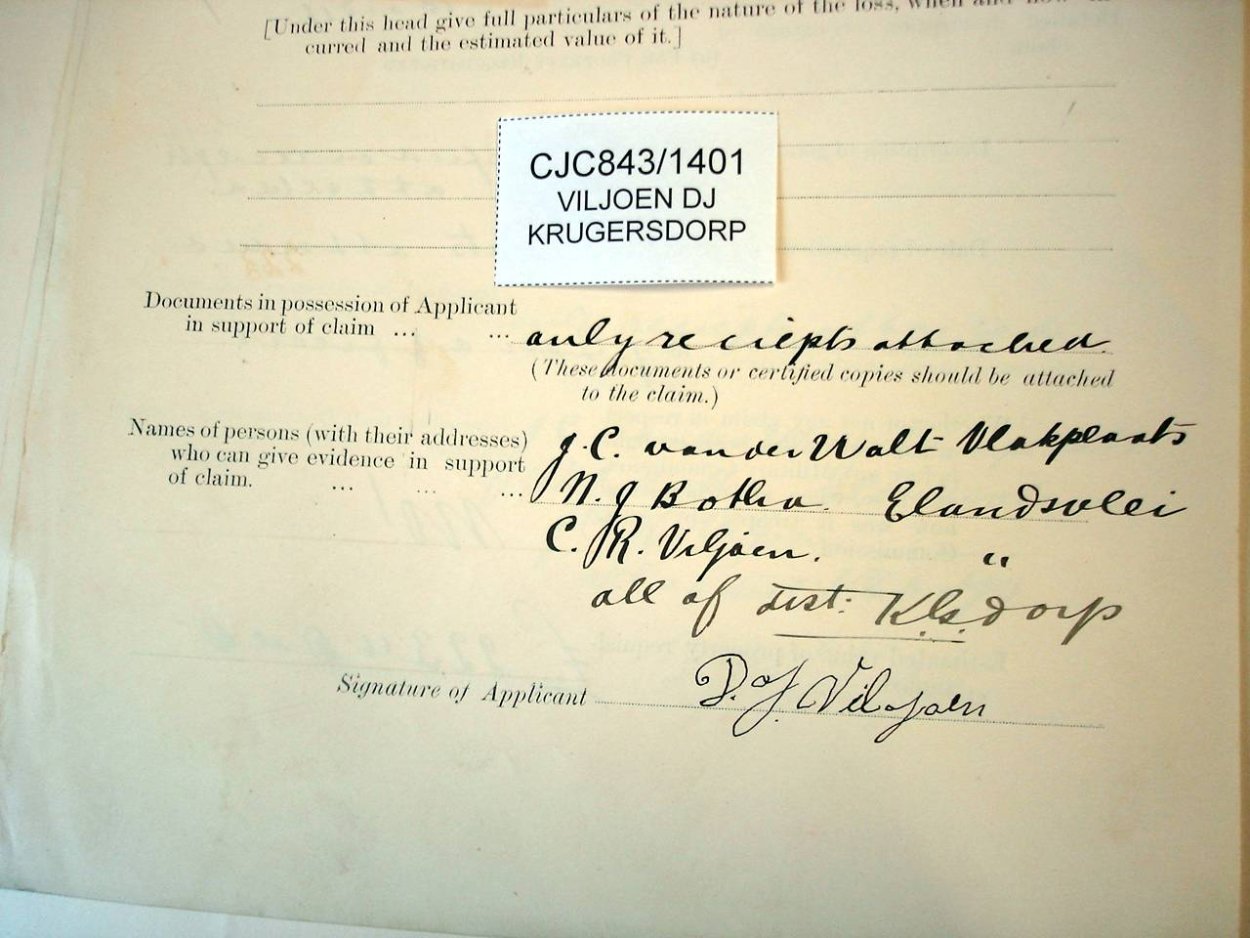 [Under this head give full particulars of the nature of the loss, when and how in-
curred and the estimated value of it.]
CJC843/1401
VILJOEN DJ
KRUGERSDORP
Documents in possession of Applicant
in support of claim ... ... only reciepts attached.
(These documents or certified copies should be attached
to the claim.)
Names of persons (with their addresses)
who can give evidence in support
of claim. ... ... ...
J. C. van der Walt Vlakplaats
N. J Botha. Elandsvlei
C. R. Viljoen. "
all of Dist: Klsdorp
Signature of Applicant D. J. Viljoen